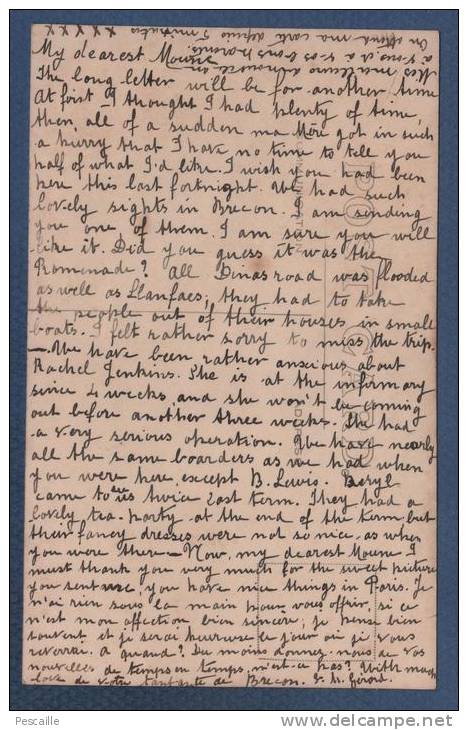 On attend ma carte depuis 5 minutes x x x x x
à vous et à vos bons parents.
Mes meilleurs
My dearest Moune
The long letter will be for another time
At first I thought I had plenty of time,
then, all of a sudden ma Mère got in such
a hurry that I have no time to tell you
half of what I'd like. I wish you had been
here this last fortnight. We had such
lovely sights in Brecon. I am sending
you one of them. I am sure you will
like it. Did you guess it was the
Promenade? All Dinas road was flooded
as well as Llanfaes; they had to take
the people out of their houses in small
boats. I felt rather sorry to miss the trip.
— We have been rather anscious about
Rachel Jenkins. She is at the infirmary
since 4 weeks, and she won't be coming
out before another three weeks. She had
a very serious operation. We have nearly
all the same boarders as we had when
you were here, except B. Lewis. Beryl
came to us twice last term. They had a
lovely tea-party at the end of the term but
their fancy dresses were not so nice as when
you were there — Now, my dearest Moune I
must thank you very much for the sweet picture
you sent me, you have nice things in Paris. Je
n'ai rien sous la main pour vous offrir, si ce
n'est mon affection bien sincère; je pense bien
souvent et je serai heureuse le jour où je vous
reverrai. A quand? Du moins donnez-nous de vos
nouvelles de temps en temps, n'est-ce pas? With much
love de votre tantante de Brecon. Sr M. Gérard.
POST CARD
COMMUNICATION
ADDRESS
Pescaille
www.delcampe.net